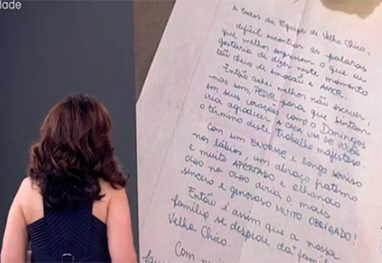 dade
A todos da Equipe de Velho Chico,
... difícil encontrar as palavras
que melhor expressem o que eu
gostaria de dizer neste momento
tão cheio de emoção e AMOR.
Então achei melhor não escrever,
mas sim PEDIR para que sintam
em seus corações como o Domingos
iria agradecer A CADA UM DE VOCÊS
o término deste trabalho majestoso
Com um ENORME e longo sorriso
nos lábios, um abraço fraterno
e muito APERTADO e olhando
olho no olho diria o mais
sincero e generoso MUITO OBRIGADO!
Então é assim que a nossa
família se despede da família
Velho Chico.
Com